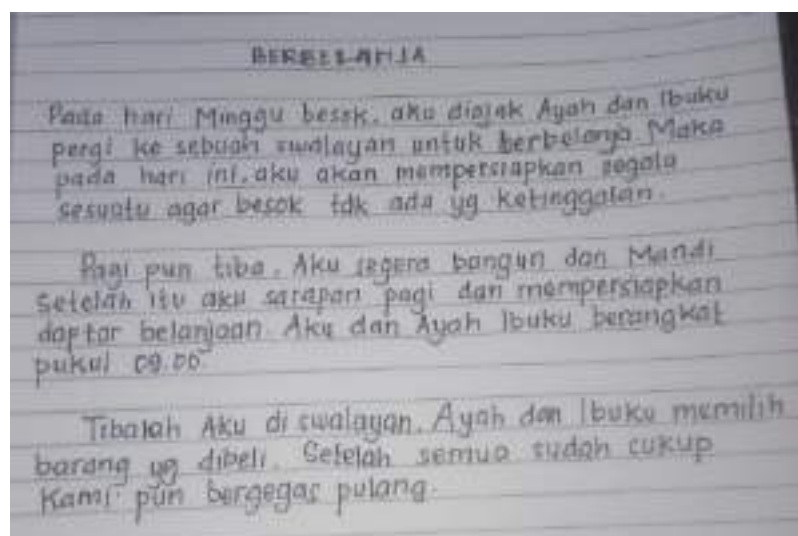 BERBELANJA
Pada hari Minggu besok, aku diajak Ayah dan Ibuku
pergi ke sebuah swalayan untuk berbelanja Maka
pada hari ini, aku akan mempersiapkan segala
sesuatu agar besok tdk ada yg ketinggalan.
Pagi pun tiba. Aku segera bangun dan Mandi
setelah itu aku sarapan pagi dan mempersiapkan
daptar belanjaan Aku dan Ayah Ibuku berangkat
pukul 09.00.
Tibalah Aku di swalayan. Ayah dan Ibuku memilih
barang yg dibeli. Setelah semua sudah cukup
Kami pun bergegas pulang.